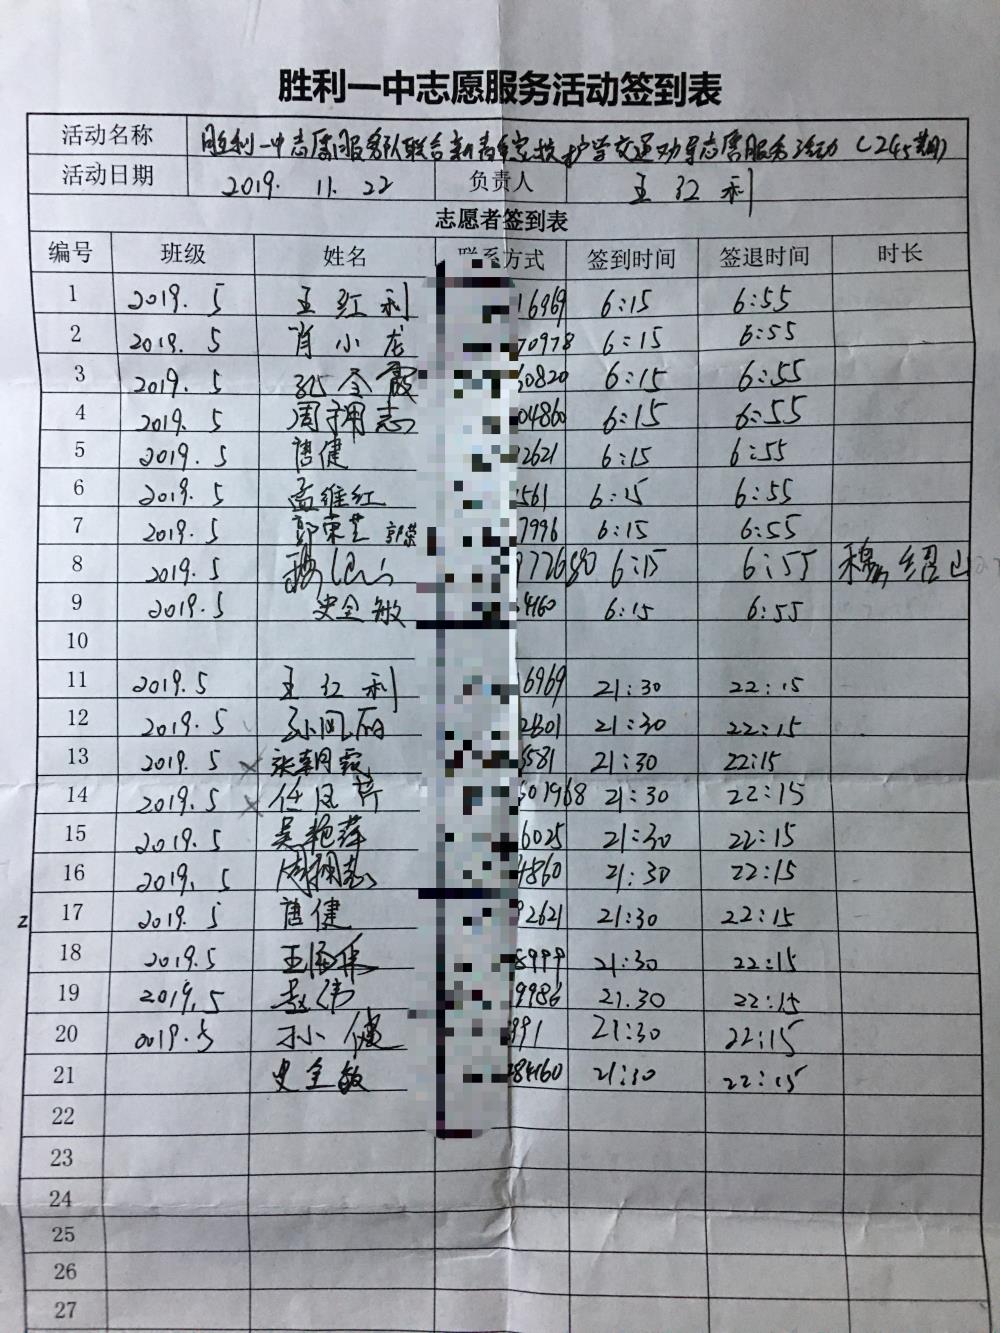 胜利一中志愿服务活动签到表
活动名称 胜利一中志愿服务队联合新青年家校护学交通劝导志愿服务活动(245期)
活动日期 2019. 11. 22 负责人 王红利
志愿者签到表
编号 班级 姓名 联系方式 签到时间 签退时间 时长
1 2019. 5 王红利 16969 6:15 6:55
2 2019. 5 肖小龙 70978 6:15 6:55
3 2019. 5 60820 6:15 6:55
4 2019. 5 周 志 04860 6:15 6:55
5 2019. 5 唐健 2621 6:15 6:55
6 2019. 5 孟维红 1561 6:15 6:55
7 2019. 5 郭荣芝 郭荣 7996 6:15 6:55
8 2019.5 6:15 6:55 穆绍山
9 2019.5 史全敏 4160 6:15 6:55
10
11 2019.5 王红利 6969 21:30 22:15
12 2019.5 孙凤丽 21:30 22:15
13 2019.5 × 张朝霞 581 21:30 22:15
14 2019.5 × 任凤芹 01968 21:30 22:15
15 2019.5 吴艳萍 6025 21:30 22:15
16 2019. 5 4860 21:30 22:15
z
17 2019. 5 唐健 92621 21:30 22:15
18 2019.5 王海 8999 21:30 22:15
19 2019.5 赵伟 9986 21.30 22:15
20 2019.5 孙健 991 21:30 22:15
21 史全敏 84160 21:30 22:15
22
23
24
25
26
27